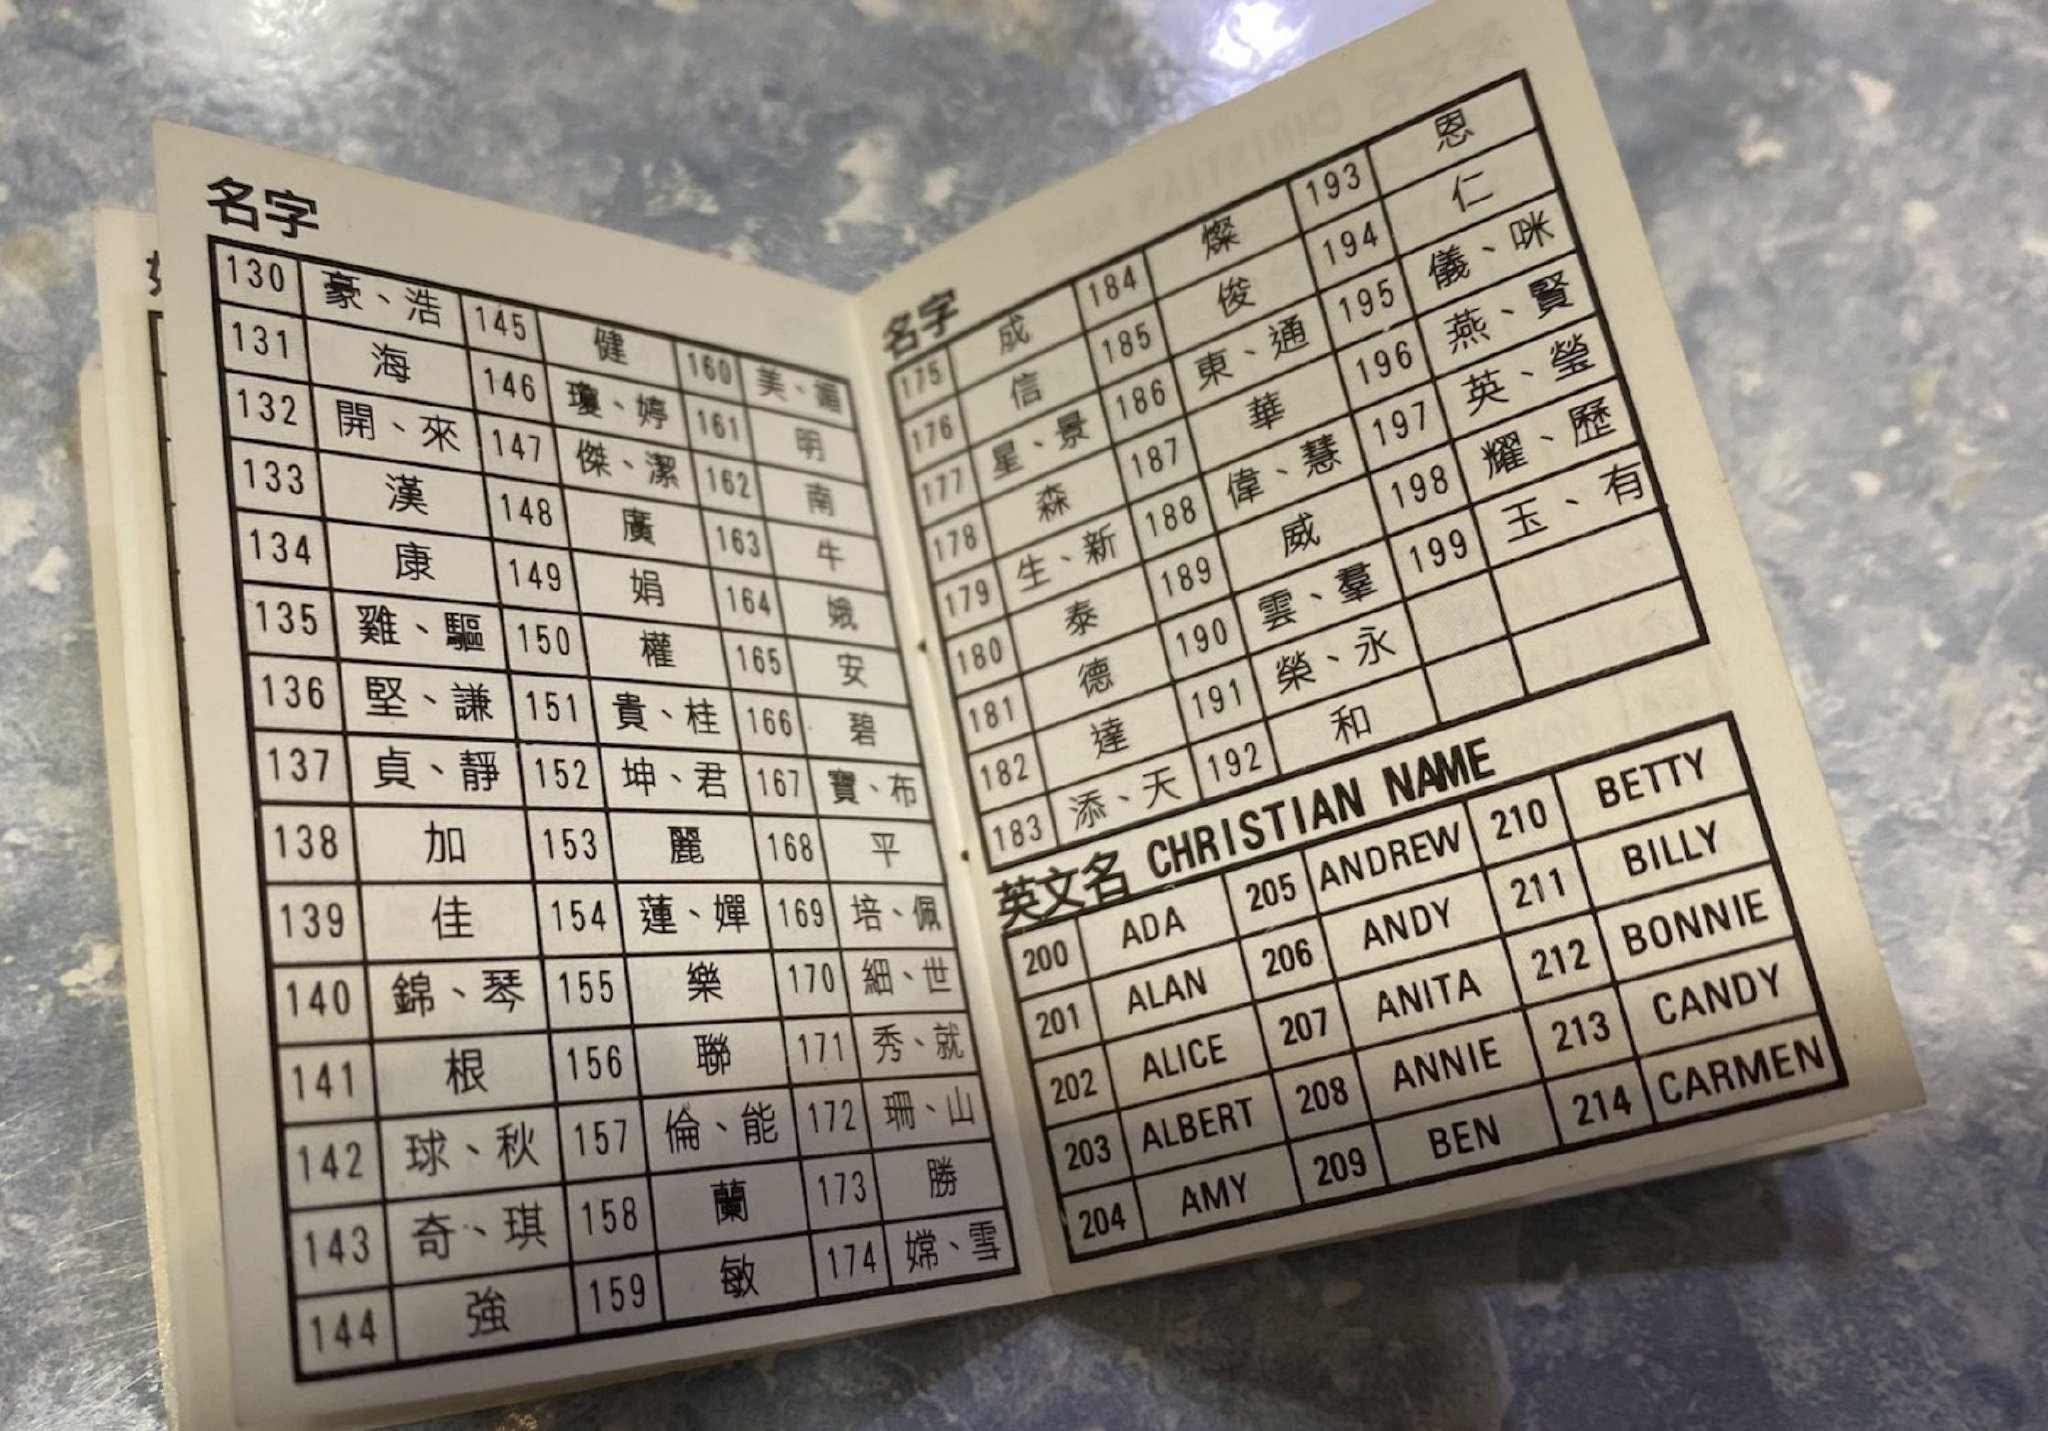 名字
130 豪、浩 145 健 160 美、媚
131 海 146 瓊、婷 161 明
132 開、來 147 傑、潔 162 南
133 漢 148 廣 163 牛
134 康 149 娟 164 娥
135 雞、驅 150 權 165 安
136 堅、謙 151 貴、桂 166 碧
137 貞、靜 152 坤、君 167 寶、布
138 加 153 麗 168 平
139 佳 154 蓮、嬋 169 培、佩
140 錦、琴 155 樂 170 細、世
141 根 156 聯 171 秀、就
142 球、秋 157 倫、能 172 珊、山
143 奇、琪 158 蘭 173 勝
144 強 159 敏 174 嫦、雪
名字
175 成 184 燦 193 恩
176 信 185 俊 194 仁
177 星、景 186 東、通 195 儀、咪
178 森 187 華 196 燕、賢
179 生、新 188 偉、慧 197 英、瑩
180 泰 189 威 198 耀、歷
181 德 190 雲、羣 199 玉、有
182 達 191 榮、永
183 添、天 192 和
英文名 CHRISTIAN NAME
200 ADA 205 ANDREW 210 BETTY
201 ALAN 206 ANDY 211 BILLY
202 ALICE 207 ANITA 212 BONNIE
203 ALBERT 208 ANNIE 213 CANDY
204 AMY 209 BEN 214 CARMEN